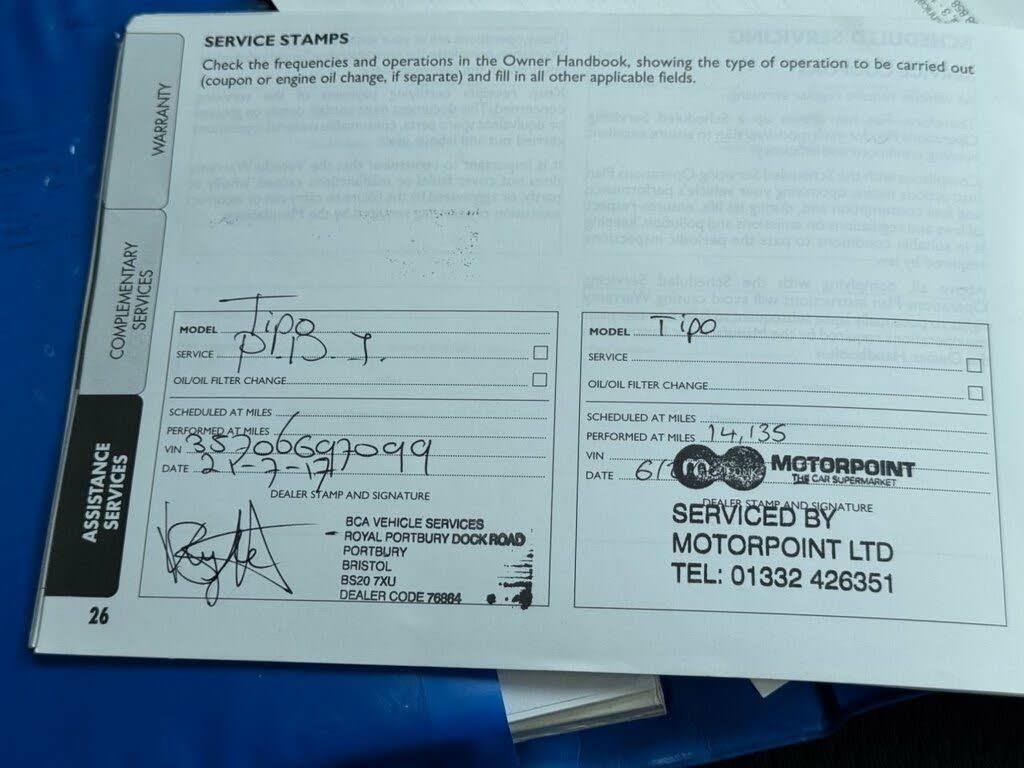 SERVICE STAMPS
Check the frequencies and operations in the Owner Handbook, showing the type of operation to be carried out
(coupon or engine oil change, if separate) and fill in all other applicable fields.
WARRANTY
COMPLEMENTARY
SERVICES
ASSISTANCE
SERVICES
MODEL Tipo
SERVICE P.D.I.
OIL/OIL FILTER CHANGE
SCHEDULED AT MILES
PERFORMED AT MILES
VIN 35706697099
DATE 21-7-17
DEALER STAMP AND SIGNATURE
BCA VEHICLE SERVICES
ROYAL PORTBURY DOCK ROAD
PORTBURY
BRISTOL
BS20 7XU
DEALER CODE 76864
MODEL Tipo
SERVICE
OIL/OIL FILTER CHANGE
SCHEDULED AT MILES
PERFORMED AT MILES 14,135
VIN
DATE 6/
MOTORPOINT
THE CAR SUPERMARKET
DEALER STAMP AND SIGNATURE
SERVICED BY
MOTORPOINT LTD
TEL: 01332 426351
26